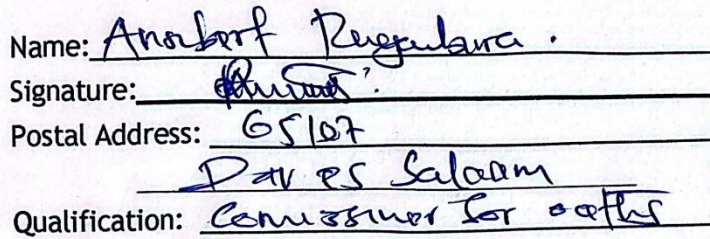 Name:
Signature:
Postal Address: 65107
Dar es Salaam
Qualification: Comissiner for oaths